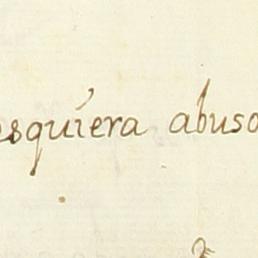 osquiera abuso